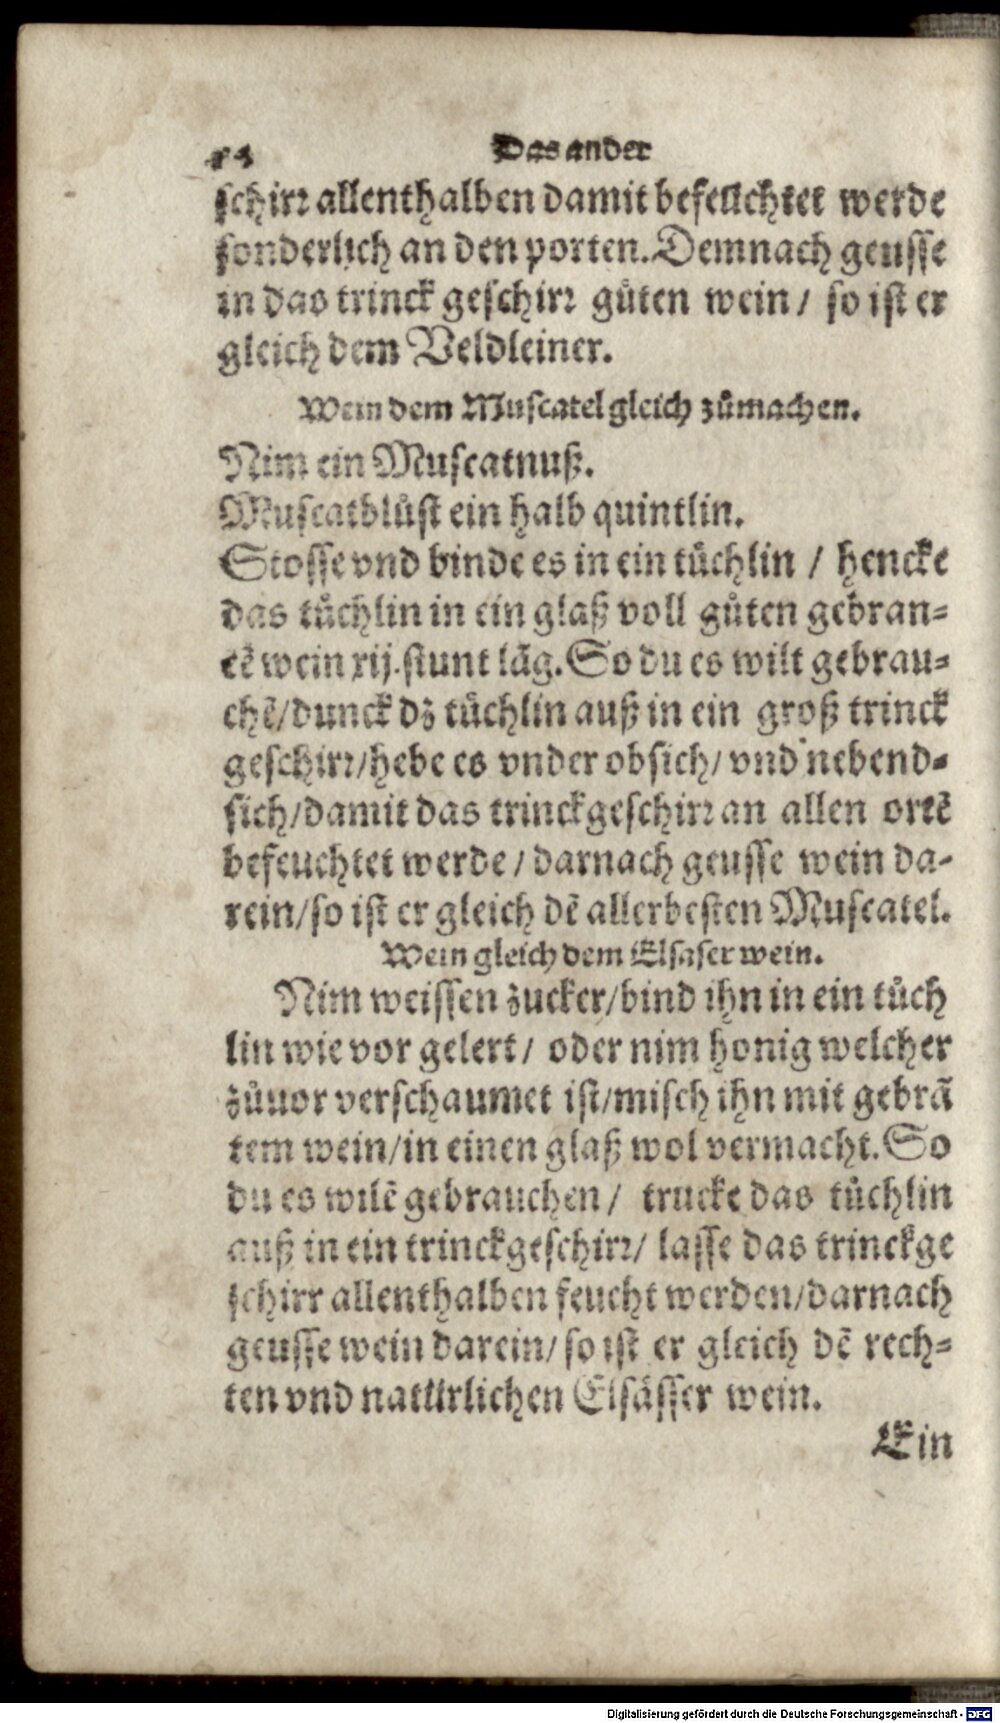 Das ander
schirr allenthalben damit befeuchtet werde
sonderlich an den porten. Demnach geusse
in das trinck geschirr gůten wein / so ist er
gleich dem Veldleiner.
Wein dem Muscatel gleich zůmachen.
Nim ein Muscatnuß.
Muscatblůst ein halb quintlin.
Stosse vnd binde es in ein tůchlin / hencke
das tůchlin in ein glaß voll gůten gebran-
tẽ wein xij. stunt lãg. So du es wilt gebrau-
chẽ / dunck dz tůchlin auß in ein groß trinck
geschirr / hebe es vnder obsich / vnd nebend-
sich / damit das trinckgeschirr an allen ortẽ
befeuchtet werde / darnach geusse wein da-
rein / so ist er gleich dẽ allerbesten Muscatel.
Wein gleich dem Elsaser wein.
Nim weissen zucker / bind ihn in ein tůch
lin wie vor gelert / oder nim honig welcher
zůuor verschaumet ist / misch ihn mit gebrã
tem wein / in einen glaß wol vermacht. So
du es wilt gebrauchen / trucke das tůchlin
auß in ein trinckgeschirr / lasse das trinckge
schirr allenthalben feucht werden / darnach
geusse wein darein / so ist er gleich dẽ rech-
ten vnd natürlichen Elsässer wein.
Ein
Digitalisierung gefördert durch die Deutsche Forschungsgemeinschaft - DFG